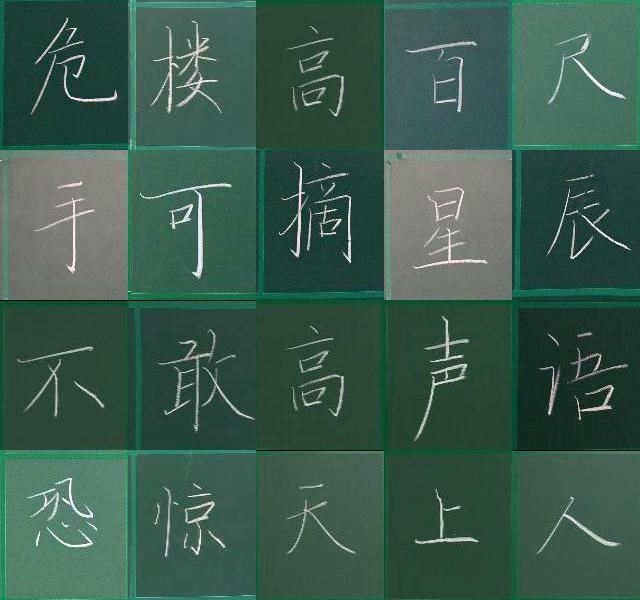 危楼高百尺
手可摘星辰
不敢高声语
恐惊天上人